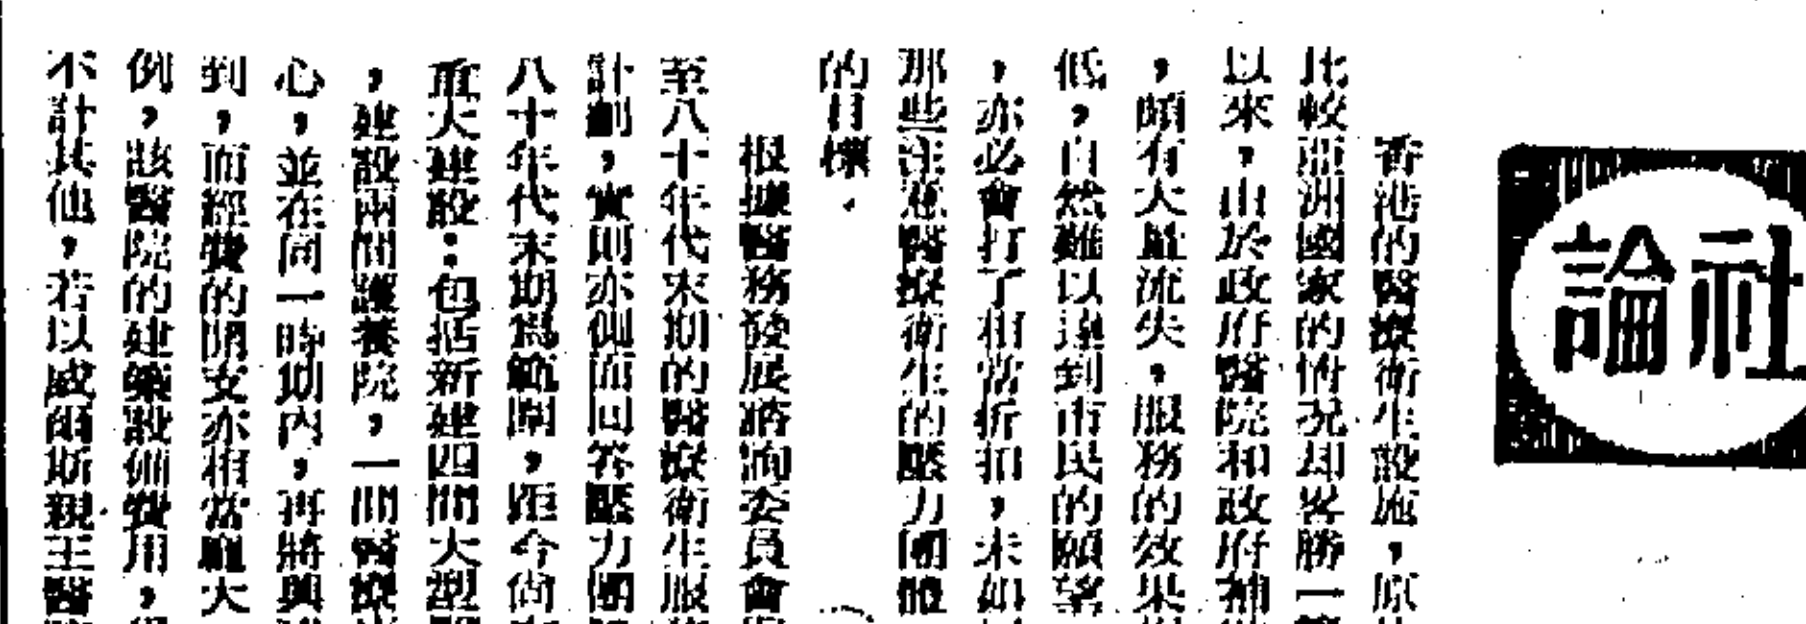 社論
香港的醫療衛生設施，原
比較亞洲國家的情况却畧勝一籌
以來，由於政府醫院和政府補
，頗有大量流失。服務的效果
低，自然難以達到市民的願望
，亦必會打了相當折扣，未如
那些注意醫療衛生的壓力團體
的目標．
根據醫務發展諮詢委員會
至八十年代末期的醫療衛生服
計劃，實則亦側面回答壓力團
八十年代末期爲範圍，距今尙
重大建設：包括新建四間大型
，建設兩間護養院，一間醫療
心，並在同一時期內，再將興
到，而經費的開支亦相當龐大
例，該醫院的建築設備費用，
不計其他，若以威爾斯親王醫